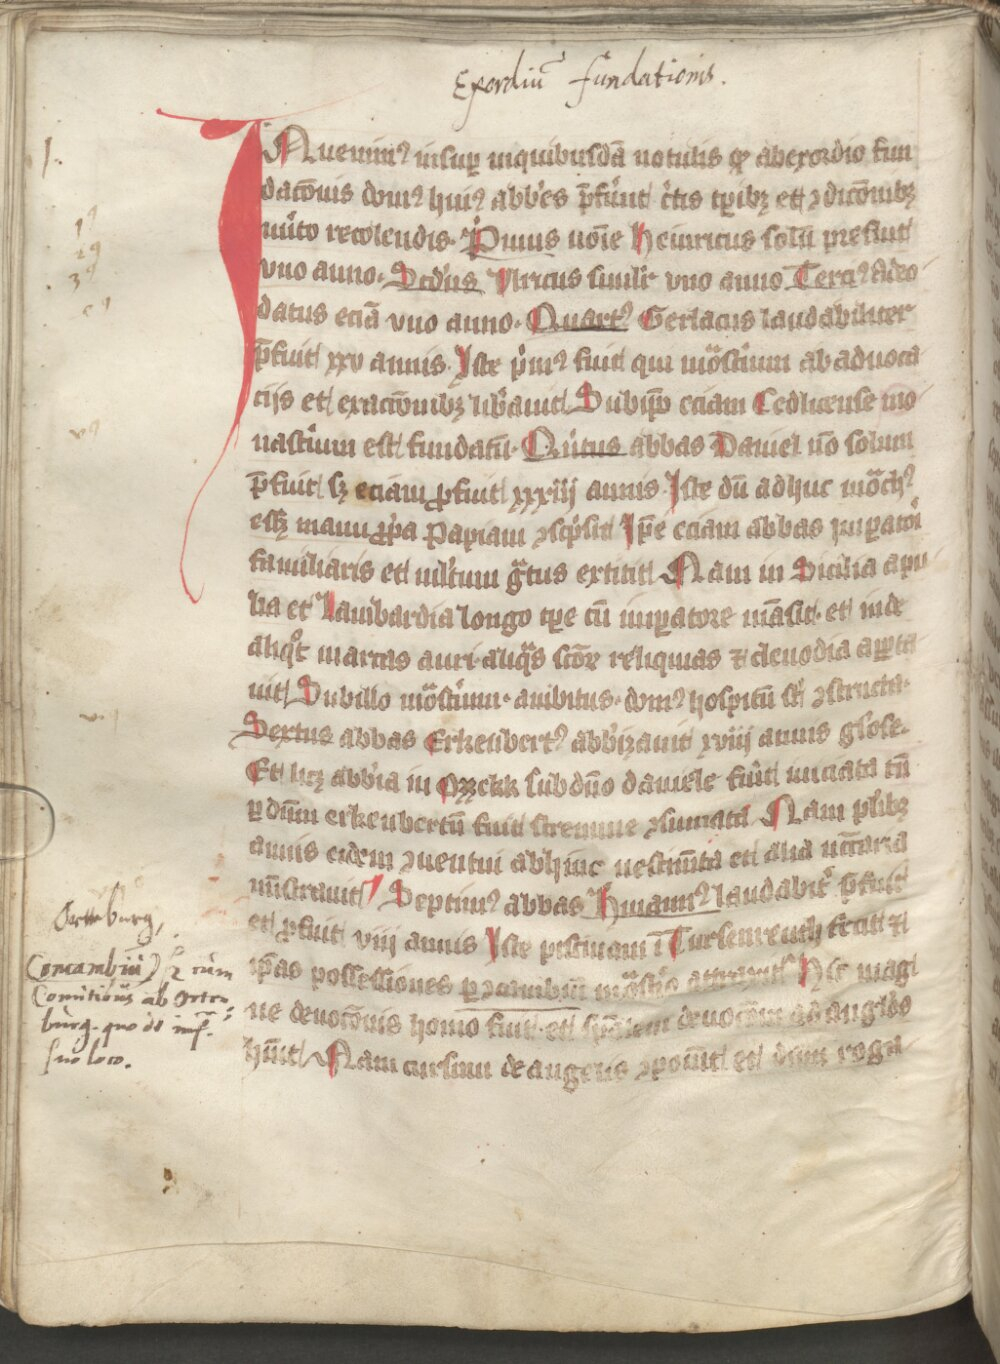 Exordiū fundationis.
INuenimꝰ insuꝑ in quibusdā notulis qͥ ab exordio fun
dacōnis domꝰ huiꝰ abbēs p̄fu̇nt c̄tis tꝑibꝫ et ꝯdicōnibꝫ
mīto recolendis. Pͥmus noīe Heinricus solū prefuit
vno anno. Scd'us Vlricus simlr vno anno Terciꝰ Adeo
datus eciā vno anno. Quartꝰ Gerlacus laudabiliter
p̄fuit xxv annis. Iste pͥmꝰ fuit qui mōstͥium ab aduoca
cijs et exaccōnibꝫ libāuit. Sub ip̄o eciam Cedlicense mo
nastͥium est fundatū. Quītus abbas Daniel nō solum
p̄fuit sꝫ eciam ꝓfuit xxxiij annis. Iste dū adhuc mōchꝰ
esset manu ꝓp̄a Papiam ꝯscͥpsit Ip̄e eciam abbas impatōi
familiaris et mltum gͣtus extitit Nam in Sicilia apu
lia et Lambardia longo tꝑe cū imperatore māsit. et inde
aliqͦt marcas auri. aliqͣs sc̄oꝝ reliquias ⁊ clenodia apporta
uit Sub illo mōstͥium. ambitus. domꝰ hospitū st̄ ꝯstructa.
Sextus abbas Erkenbertꝰ abbizauit xviij annis gl'ose.
Et licꝫ abbīa in Ozzekk sub dn̄o daniele fuīt iniciata tn̄
ꝑ dn̄m erkenbertū fuit strennue ꝯsumata Nam plibꝫ
annis eidem ꝯuentui abhinc uestimēta et alia nc̄c̄aria
mīstrauit Septimꝰ abbas Hmannꝰ laudabitͥ p̄fuit
et ꝓfuit viij annis Iste piscinam ī Tursenreuth fecit ⁊
ip̄as possessiones ꝑ ꝯcambiū mōstͥio attraxit Hic mag
ne deuocōnis homo fuit. et spālem deuocōem ad angl'os
hūit Nam cursum de angelis ꝯposuit et diuī roga
Ortenburg,
Concambiū) ꝛ cum
Comitibus ab Orten=
burg. quo de inf.
suo loco.